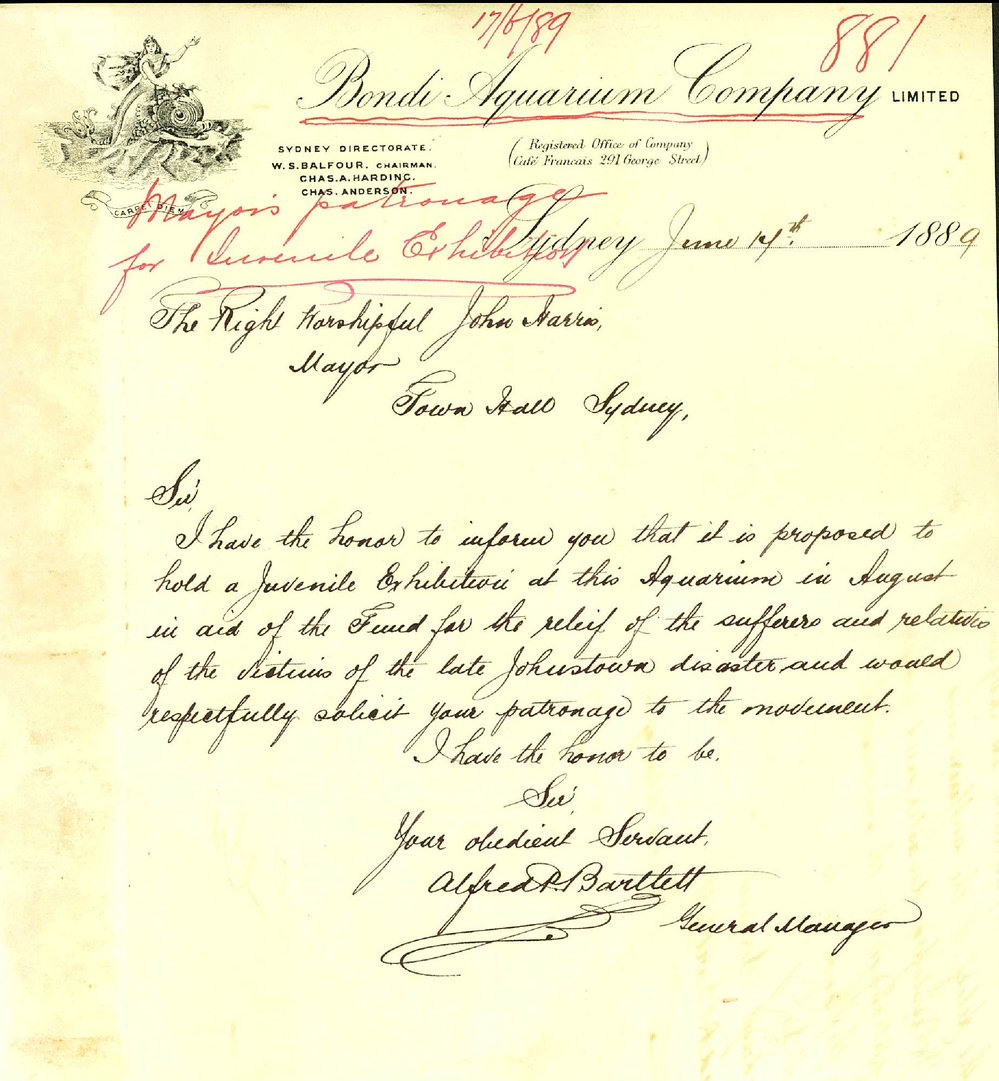 17/6/89
881
Bondi Aquarium Company LIMITED
SYDNEY DIRECTORATE.
W. S. BALFOUR. CHAIRMAN.
CHAS. A. HARDING.
CHAS. ANDERSON.
(Registered Office of Company
Café Francais 291 George Street)
CARPE DIEM
Mayor's patronage
for Juvenile Exhibition
Sydney June 14th. 1889
The Right Worshipful John Harris,
Mayor
Town Hall Sydney,
Sir,
I have the honor to inform you that it is proposed to
hold a Juvenile Exhibition at this Aquarium in August
in aid of the Fund for the relief of the sufferers and relatives
of the victims of the late Johnstown disaster, and would
respectfully solicit your patronage to the movement.
I have the honor to be.
Sir,
Your obedient Servant,
Alfred P. Bartlett
General Manager